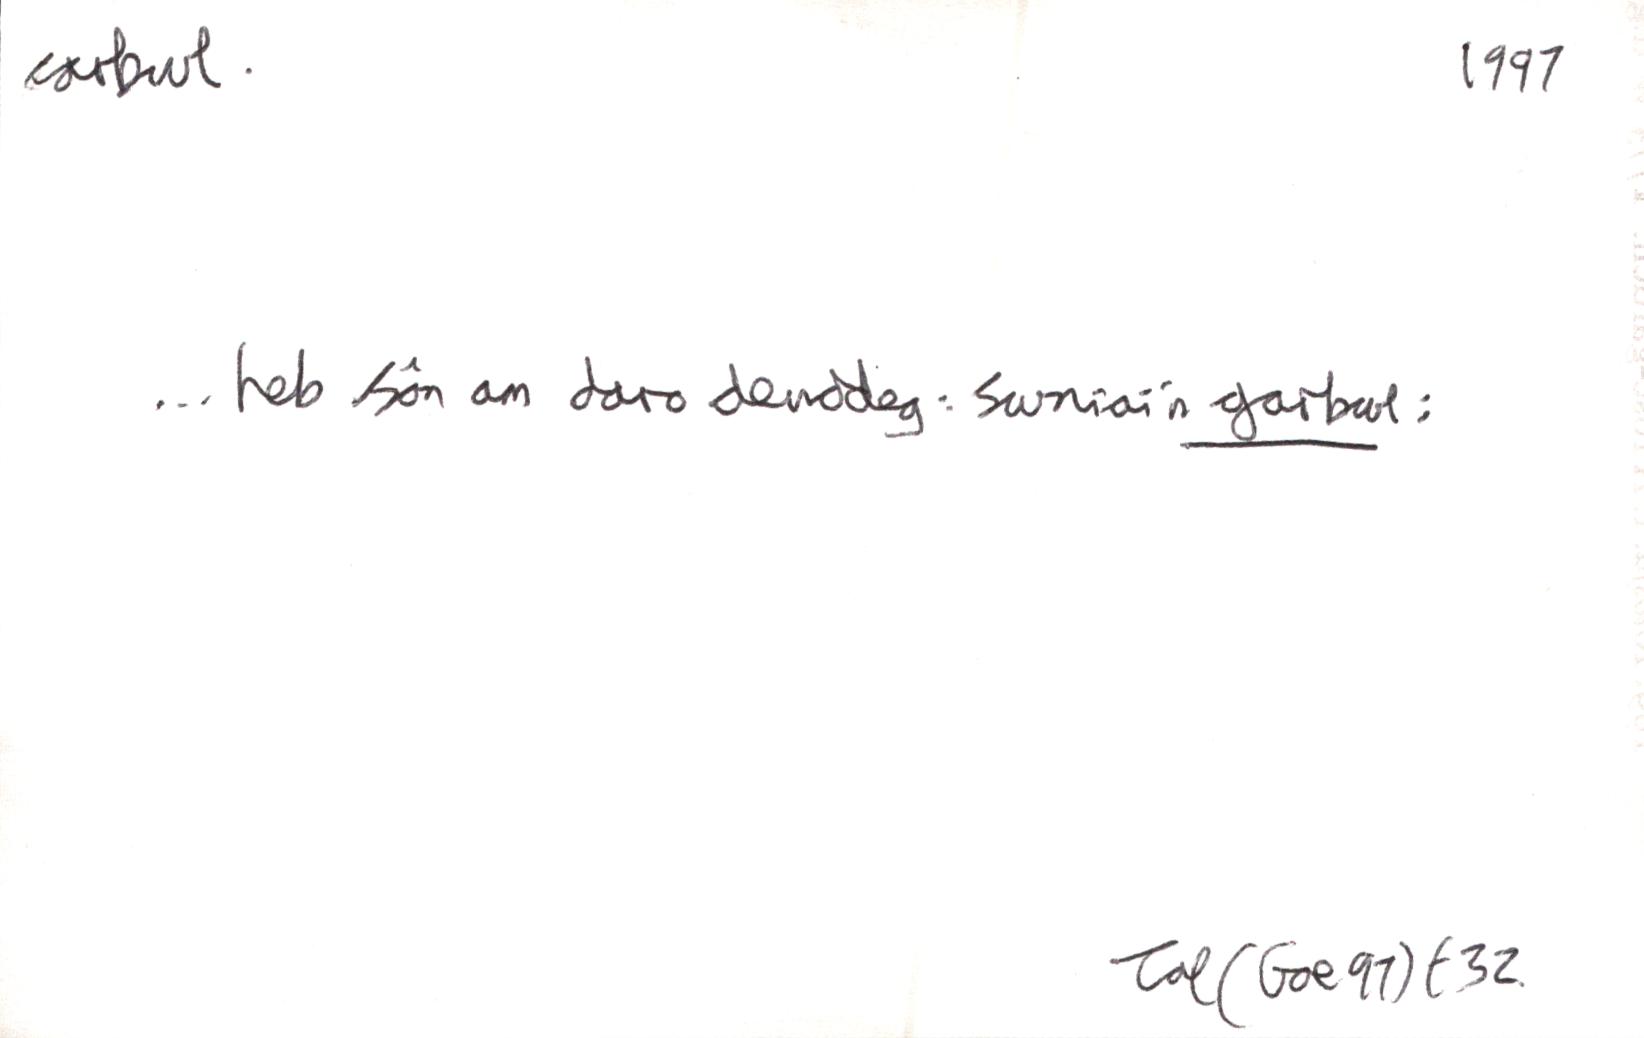 carbwl. 1997
... heb sôn am daro deuddeg: swniai'n garbwl;
Tal (Goe 97) t 32.